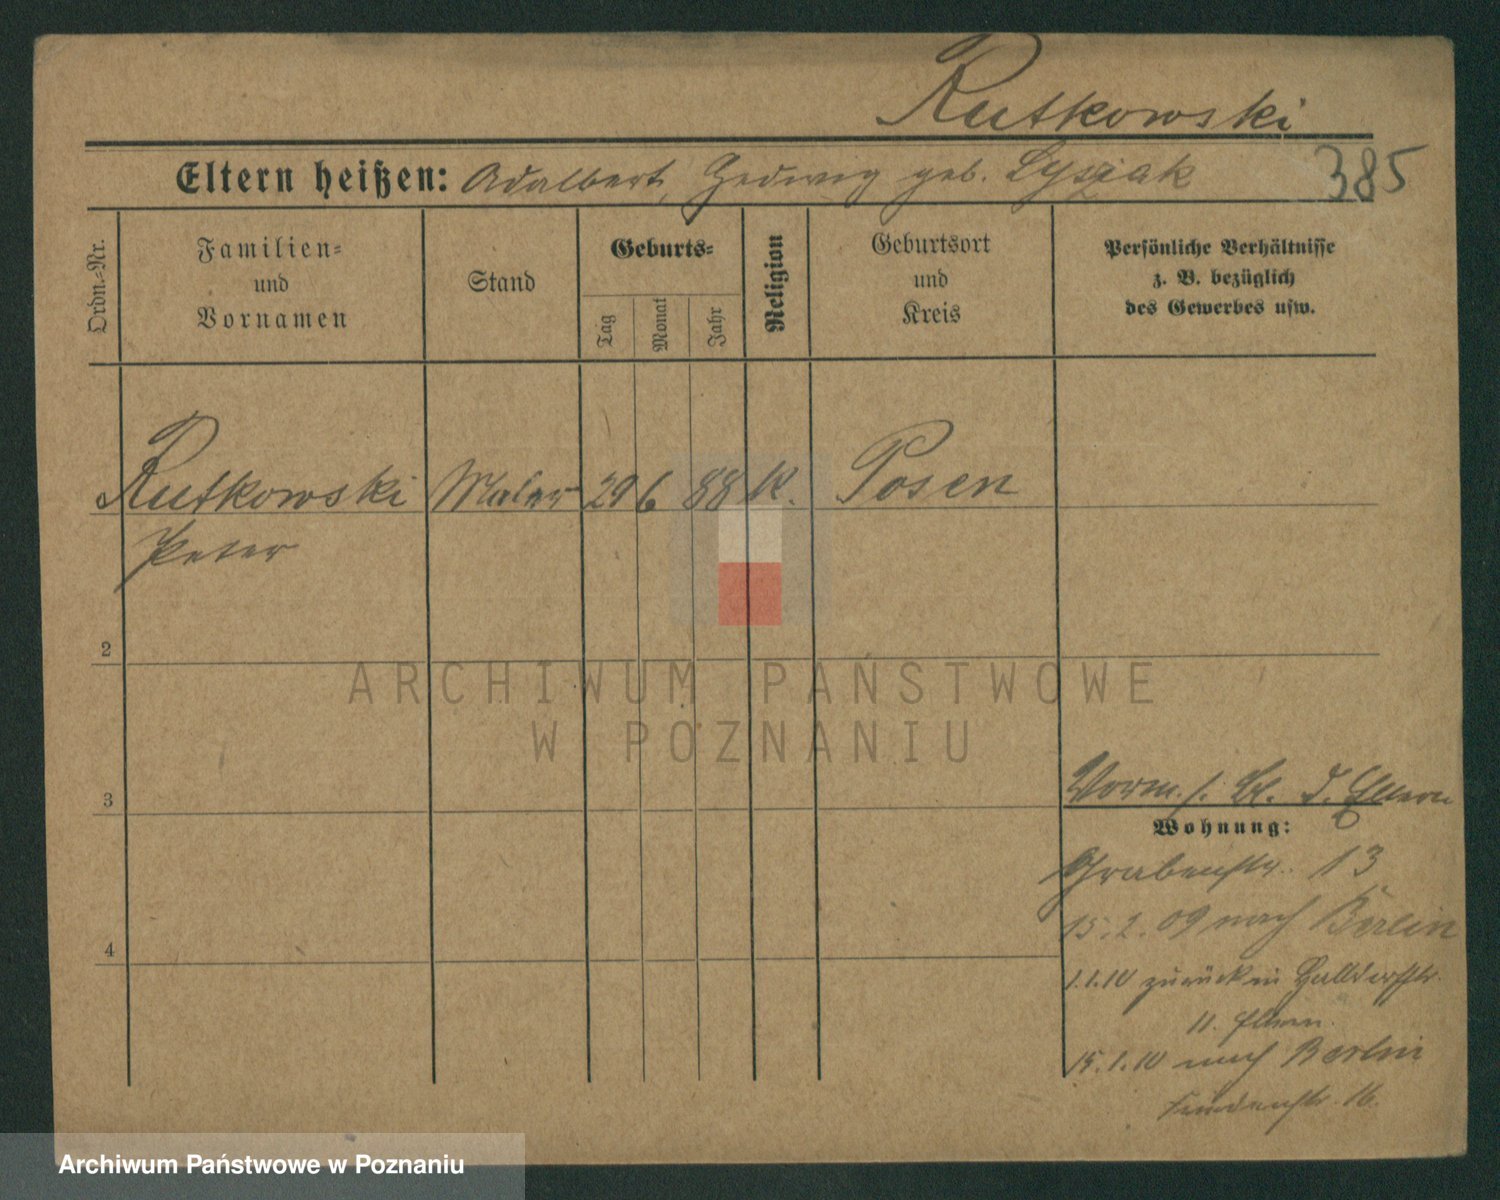 Rutkowski
385
Eltern heißen: Adalbert, Hedwig geb. Lysiak
Ordn.-Nr.
Familien-
und
Vornamen
Stand
Geburts-
Tag
Monat
Jahr
Religion
Geburtsort
und
Kreis
Persönliche Verhältnisse
z. B. bezüglich
des Gewerbes usw.
Rutkowski Maler 29 6 88 K. Posen
Peter
2
3
4
Vorm. s. Bl. d. Eltern
Wohnung:
Grabenstr. 13
15.2.09 nach Berlin
1.1.10 zurück in
11. Eltern.
15.1.10 nach Berlin
16.
ARCHIWUM PAŃSTWOWE
W POZNANIU
Archiwum Państwowe w Poznaniu